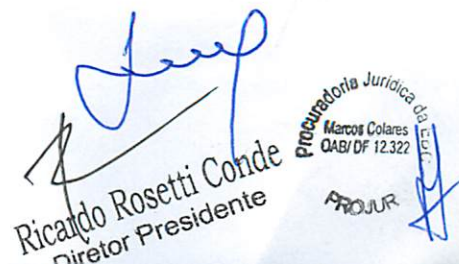 Ricardo Rosetti Conde
Diretor Presidente
Procuradoria Jurídica da EBC
Marcos Colares
OAB/DF 12.322
PROJUR